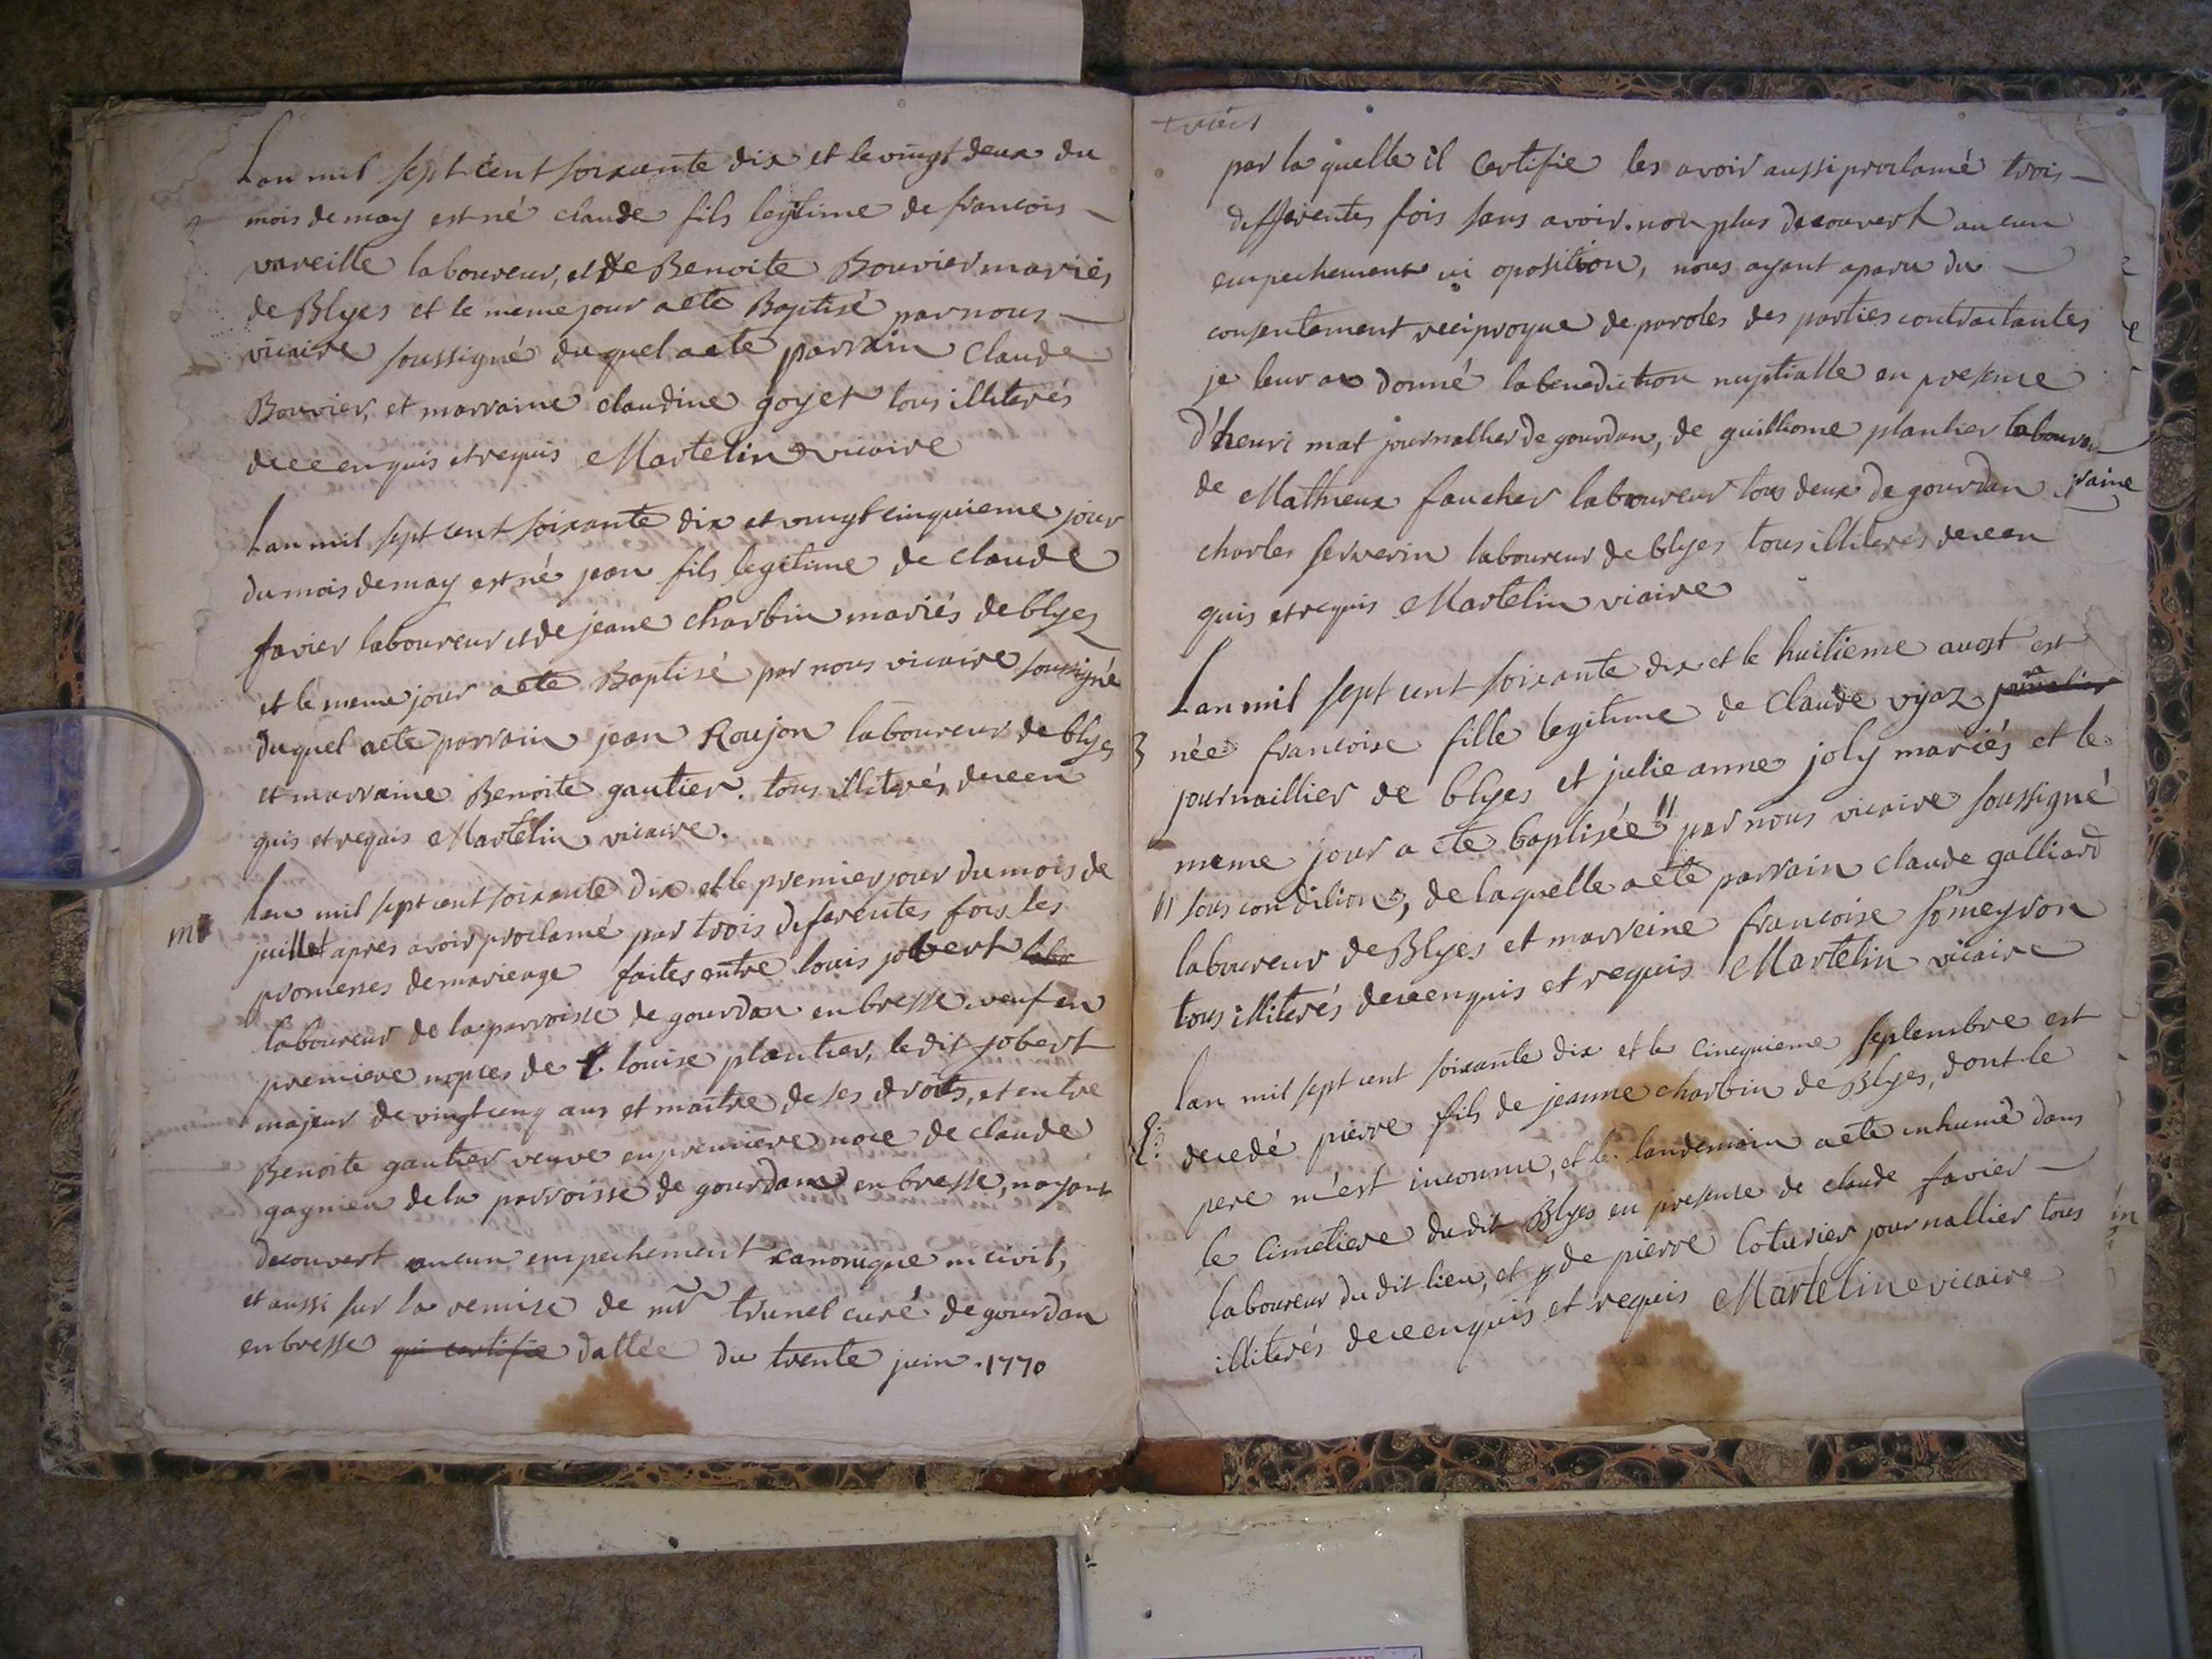 Lan mil sept cent soixante dix et le vingt deux du
mois de may est né claude fils legitime de francois
vareille laboureur, et de Benoite Bouvier mariés
de Blyes et le meme jour a ete Baptisé par nous
vicaire soussigné du quel a ete parrain Claude
Bouvier, et marraine claudine goyet tous illiterés
de ce enquis et requis Martelin vicaire
Lan mil sept cent soixante dix et vingt cinquieme jour
du mois de may est né jean fils legitime de claude
favier laboureur et de jeane charbin mariés de blyes
et le meme jour a ete Baptisé par nous vicaire soussigné
duquel a ete parrain jean Roujon laboureur de blyes
et marraine Benoite gautier. tous illiterés, de ce en
quis et requis Martelin vicaire.
m
Lan mil sept cent soixante dix et le premier jour du mois de
juillet apres avoir proclamé par trois diferentes fois les
promesses de marieage faites entre louis jobert labo
laboureur de la parroisse de gourdan en bresse. veuf en
premiere nopces de L louise plantier, le dit jobert
majeur de vingt cenq ans et maitre de ses droits, et entre
Benoite gautier veuve en premiere noce de claude
gagnieu de la parroisse de gourdans en bresse, n ayant
decouvert aucun empechement canonique ni civil,
et aussi sur la remise de mr trunel curé de gourdan
en bresse qui certifie dattée du trente juin. 1770
trois
par la quelle il Certifie les avoir aussi proclamé trois
differentes fois sans avoir. non plus decouvert aucun
empechement ni oposition, nous ayant aparu du
consentement reciproque de paroles des parties contractantes
je leur ai donné la benediction nuptialle en presence
d'henri mat journallier de gourdan, de guilliome plantier laboureur
de Mathieux faucher laboureur tous deux de gourdan
charles serverin laboureur de blyes tous illiterés de ce en
quis et requis Martelin vicaire
Lan mil sept cent soixante dix et le huitieme aoust est
3 née francoise fille legitime de Claude vyaz
journaillier de blyes et julie anne joly mariés et le
meme jour a ete baptisée " par nous vicaire soussigné
" sous condition, de laquelle a ete parrain claude galliard
laboureur de Blyes et marreine francoise someyron
tous illiterés de ce enquis et requis Martelin vicaire
lan mil sept cent soixante dix et le cinequieme septembre est
decedé pierre fils de jeanne charbin de Blyes, dont le
pere m'est inconnu, et le landemain a ete inhumé dans
le cimetiere du dit Blyes en presence de claude favier
laboureur du dit lieu, et de pierre Coturier journallier tous
illiterés de ce enquis et requis Martelin vicaire